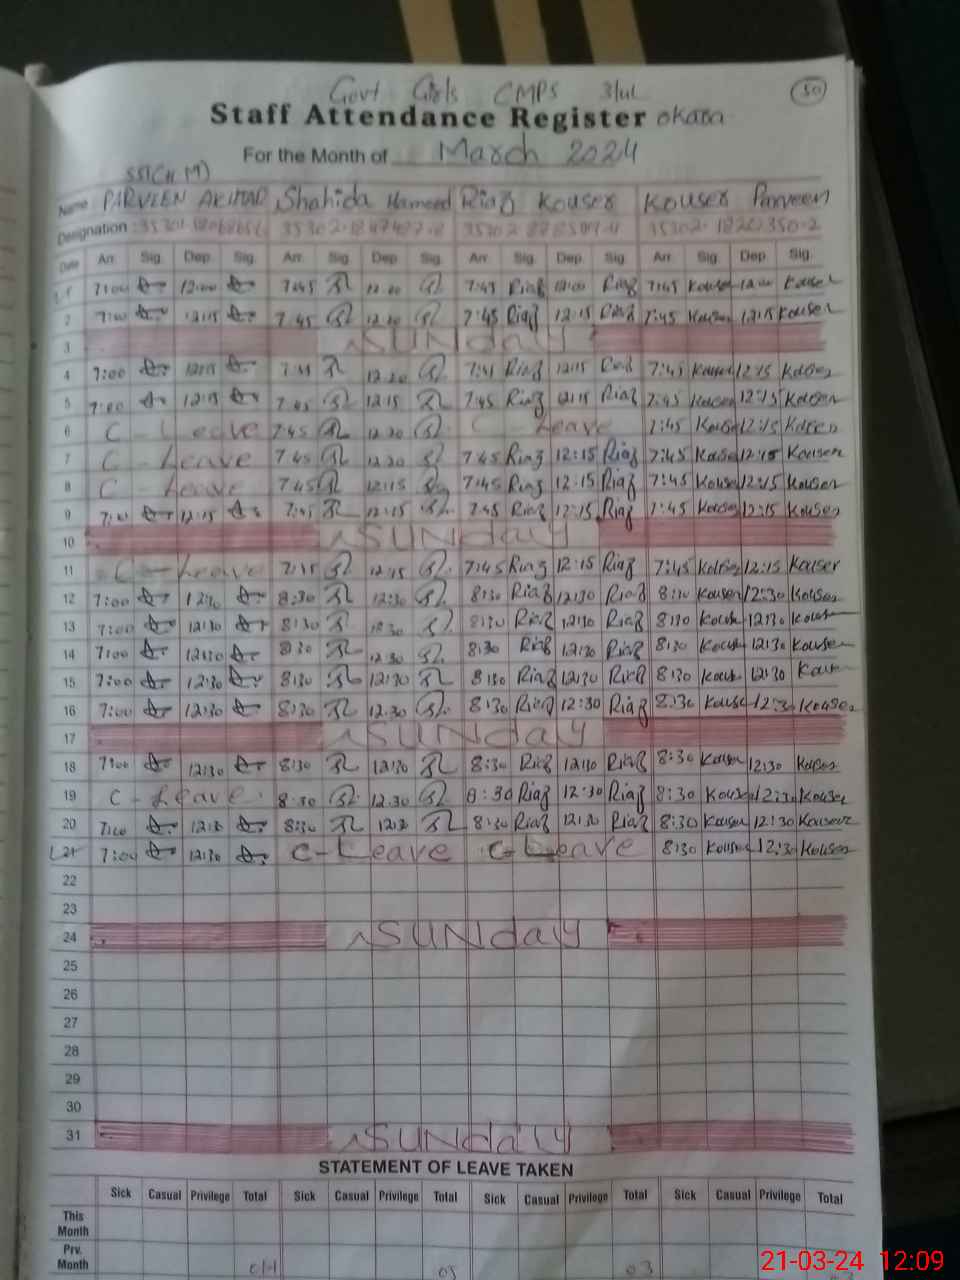 Govt Girls CMPS 3/1L
50
Staff Attendance Register okara
For the Month of March 2024
Name PARVEEN AKHTAR Shahida Hameed Riaz Kouser Kouser Parveen
Designation
Date Arr. Sig. Dep. Sig. Arr. Sig. Dep. Sig. Arr. Sig. Dep. Sig. Arr. Sig. Dep Sig.
1 7:00 12:00 7:45 7:45 Riaz 12:00 Riaz 7:45 Kouser Kouser
2 7:00 12:15 7:45 7:45 Riaz 12:15 Riaz 7:45 Kouser 12:15 Kouser
3 SUNday
4 7:00 12:15 12:20 Riaz 12:15 7:45 Kouser 12:15 Kouser
5 7:00 12:15 7:45 12:15 7:45 Riaz 12:15 Riaz 7:45 Kouser 12:15 Kouser
6 C - Leave 7:45 12:20 C - Leave 7:45 Kouser 12:15 Kouser
7 C - Leave 7:45 12:20 7:45 Riaz 12:15 Riaz 7:45 Kouser 12:15 Kouser
8 C - Leave 7:45 12:15 7:45 Riaz 12:15 Riaz 7:45 Kouser 12:15 Kouser
9 7:00 12:15 7:45 12:15 7:45 Riaz 12:15 Riaz 7:45 Kouser 12:15 Kouser
10 SUNday
11 C - Leave 12:15 7:45 Riaz 12:15 Riaz 7:45 Kouser 12:15 Kouser
12 7:00 12:30 8:30 12:30 8:30 Riaz 12:30 Riaz 8:30 Kouser 12:30 Kouser
13 7:00 12:30 8:30 12:30 8:30 Riaz 12:30 Riaz 8:30 Kouser 12:30 Kouser
14 7:00 12:30 8:30 12:30 8:30 Riaz 12:30 Riaz 8:30 Kouser 12:30 Kouser
15 7:00 12:30 8:30 12:30 8:30 Riaz 12:30 Riaz 8:30 Kouser 12:30 Kouser
16 7:00 12:30 8:30 12:30 8:30 Riaz 12:30 Riaz 8:30 Kouser 12:30 Kouser
17 SUNday
18 7:00 12:30 8:30 12:30 8:30 Riaz 12:30 Riaz 8:30 Kouser 12:30 Kouser
19 C - Leave 8:30 12:30 8:30 Riaz 12:30 Riaz 8:30 Kouser 12:30 Kouser
20 7:00 12:30 8:30 12:30 8:30 Riaz 12:30 Riaz 8:30 Kouser 12:30 Kouser
21 7:00 12:30 C - Leave C - Leave 8:30 Kouser 12:30 Kouser
22
23
24 SUNday
25
26
27
28
29
30
31 SUNday
STATEMENT OF LEAVE TAKEN
Sick Casual Privilege Total Sick Casual Privilege Total Sick Casual Privilege Total Sick Casual Privilege Total
This Month
Prv. Month 05 03
21-03-24 12:09